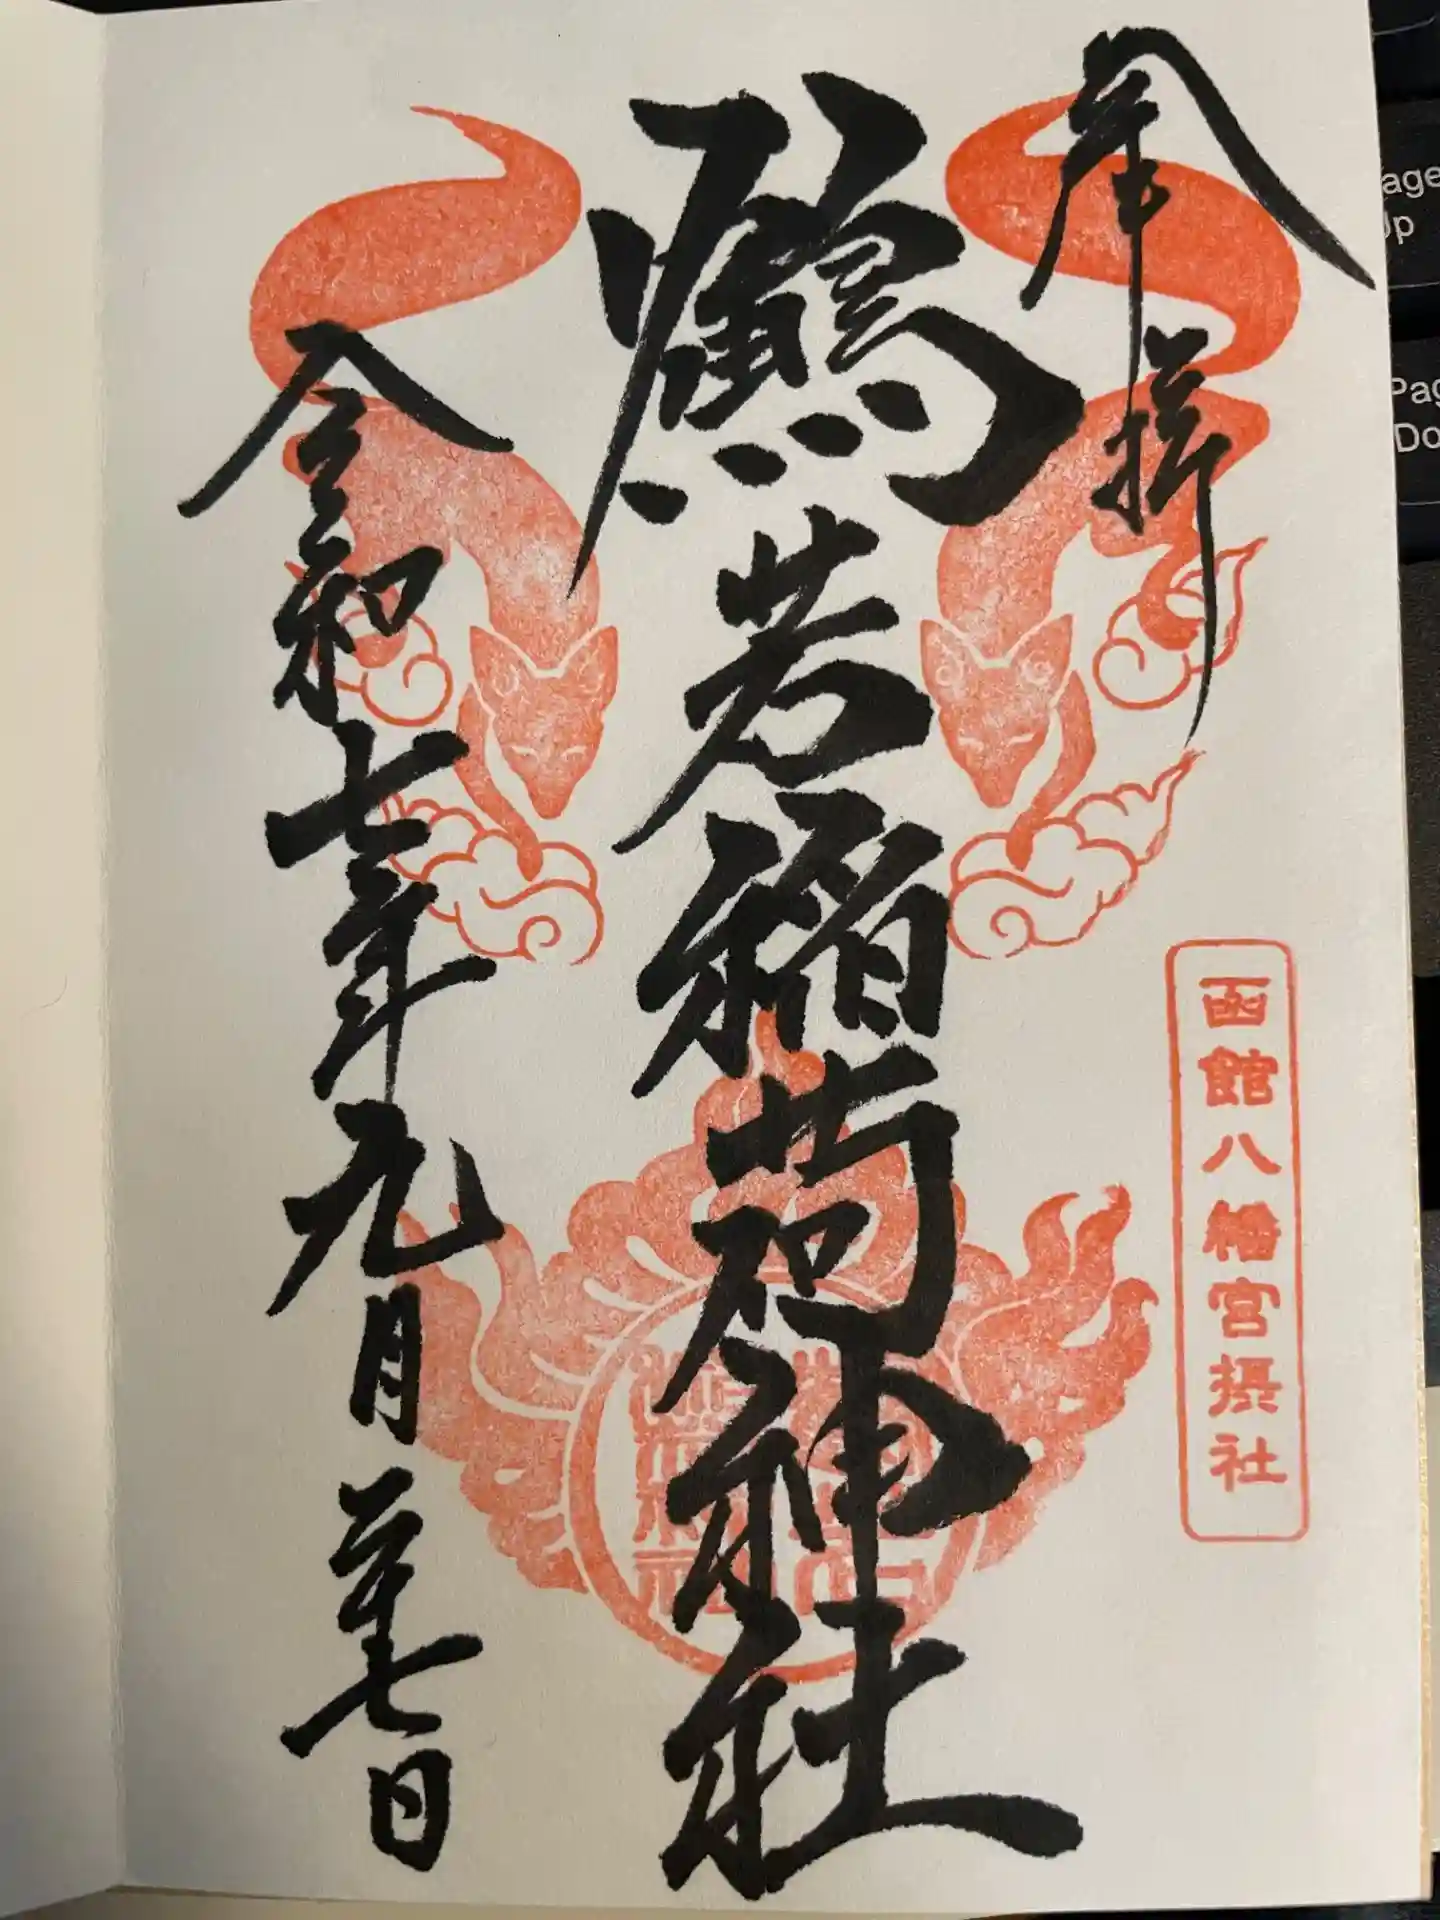 奉拝
鶴若稲荷神社
令和七年九月二十七日
函館八幡宮摂社
age
Up
Pag
Do